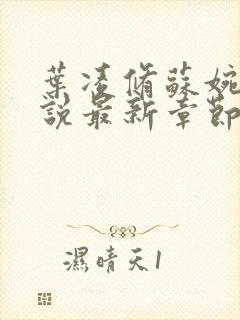 葉凌脩蘇婉
說最新章節
濕晴天1